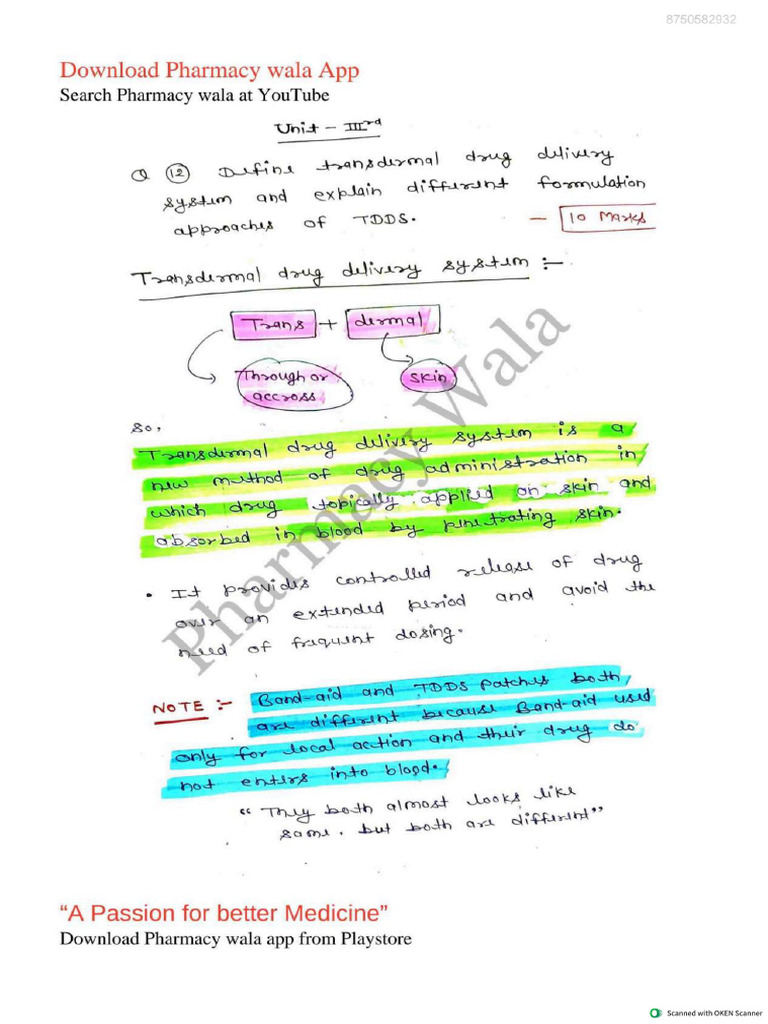 8750582932
Download Pharmacy wala App
Search Pharmacy wala at YouTube
Unit - IIIrd
Q (12) Define transdermal drug delivery
system and explain different formulation
approaches of TDDS. - 10 Marks
Transdermal drug delivery system :-
Trans + dermal
Through or skin
accross
So,
Transdermal drug delivery system is a
new method of drug administration in
which drug topically applied on skin and
absorbed in blood by penetrating skin.
• It provides controlled release of drug
over an extended period and avoid the
need of frequent dosing.
NOTE :- Band-aid and TDDS patches both
are different because Band-aid used
only for local action and their drug do
not enters into blood.
“They both almost looks like
same. but both are different”
Pharmacy Wala
“A Passion for better Medicine”
Download Pharmacy wala app from Playstore
Scanned with OKEN Scanner